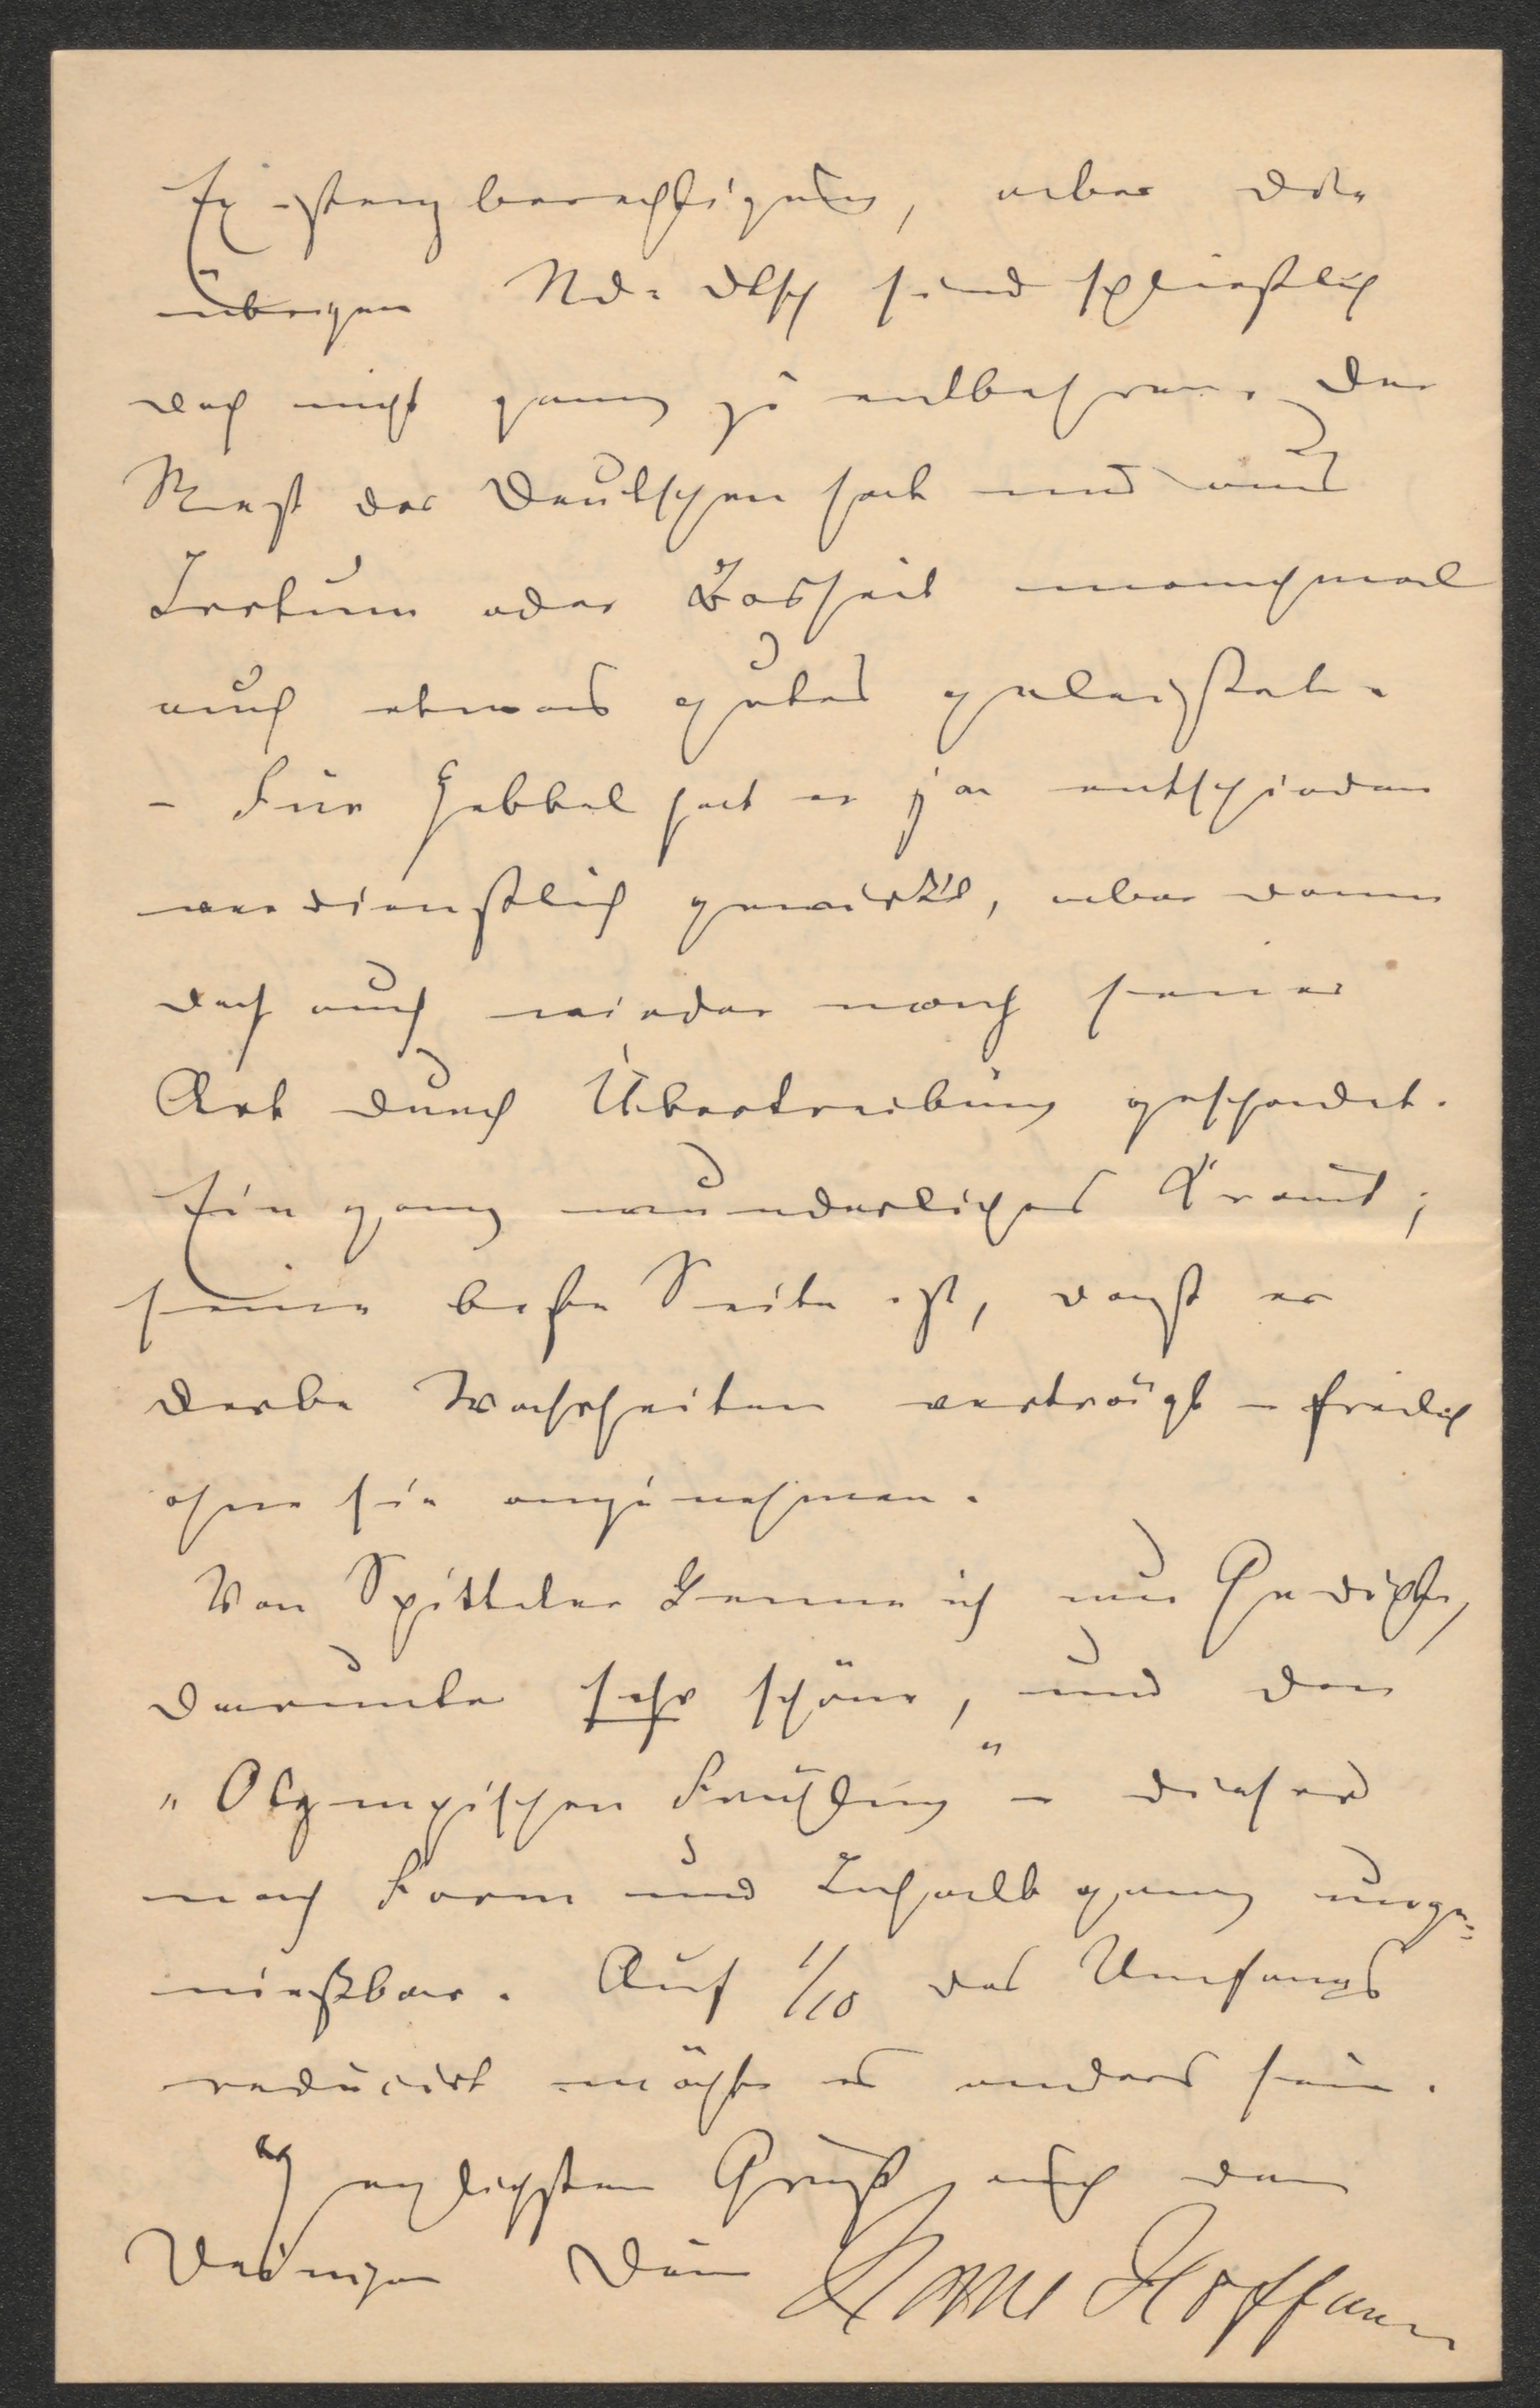 Existenzberechtigung, aber die
übrigen Nd. dtsch sind schließlich
doch nicht ganz zu entbehren. Der
Rest der Deutschen hat und aus
Irrtum oder Bosheit manchmal
auch etwas gutes geleistet.
- Für Hebbel hat er ja entschieden
verdienstlich gewirkt, aber dann
doch auch wieder nach seiner
Art durch Übertreibung geschadet.
Ein ganz wunderliches Kraut;
seine beste Seite ist, dass er
derbe Wahrheiten verträgt - freilich
ohne sie anzunehmen.
Von Spitteler kenne ich nur Gedichte,
darunter sehr schöne, und den
„Olympischen Frühling" - dieser
nach Form und Inhalt ganz unge=
nießbar. Auf 1/10 des Umfangs
reducirt möchte es anders sein.
Herzlichsten Gruß, auch den
Deinigen Dein Hans Hoffmann